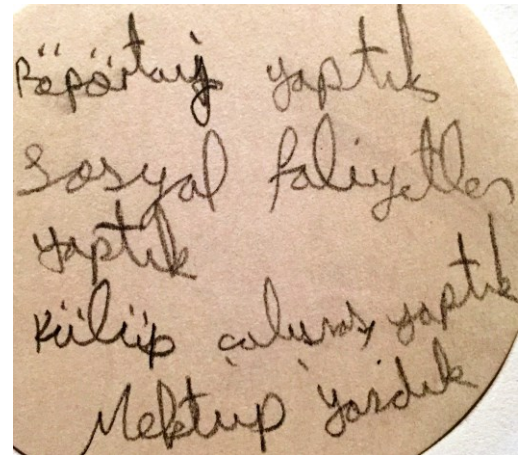 Röpörtaij yaptık
Sosyal faliyetler
yaptık
Külüp çalışması yaptık
Mektup yazdık